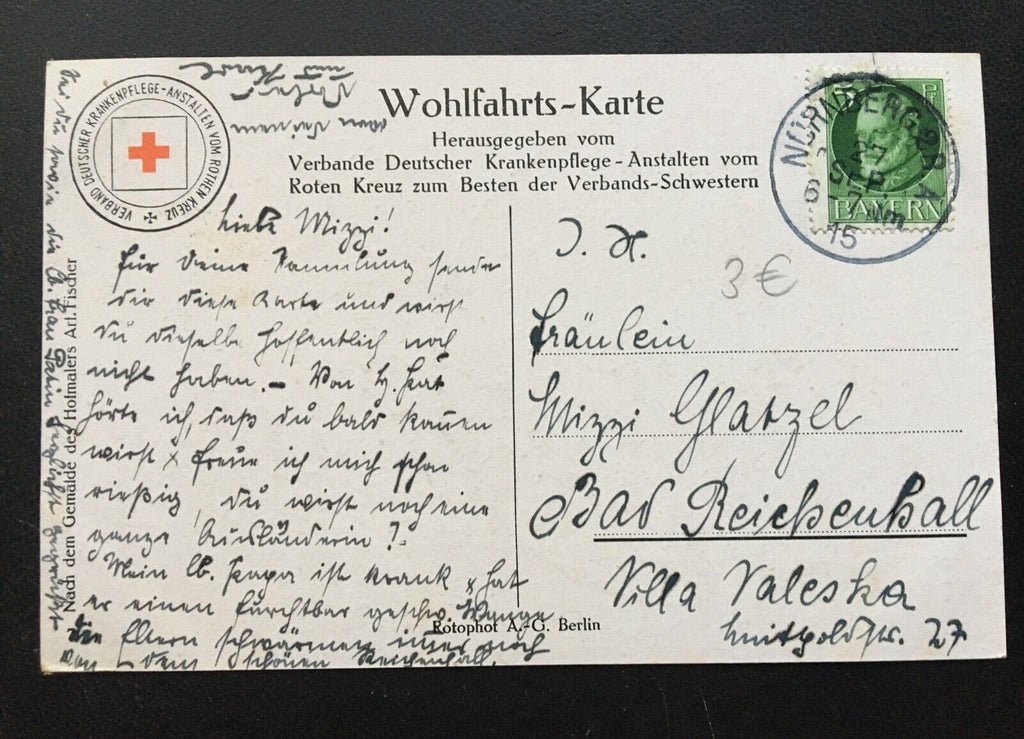 VERBAND DEUTSCHER KRANKENPFLEGE-ANSTALTEN VOM ROTHEN KREUZ
Wohlfahrts-Karte
Herausgegeben vom
Verbande Deutscher Krankenpflege-Anstalten vom
Roten Kreuz zum Besten der Verbands-Schwestern
NÜRNBERG 2
27
SEP
Nm
15
BAYERN
Liebe Mizzi!
Für Deine Sammlung sende
Dir diese Karte und wirst
Du dieselbe hoffentlich noch
nicht haben. – Von
hörte ich, daß Du bald
wirst & freue ich mich schon
rießig, Du wirst noch eine
ganze Ausländerin?
Mein lb. Papa ist krank & hat
er einen furchtbar geschw. Wange
Die Eltern schwärmen noch
von dem schönen Reichenhall,
von Deinem
J. H.
3 €
Fräulein
Mizzi Glatzel
Bad Reichenhall
Villa Valeska
Luitpoldstr. 27
Nach dem Gemälde des Hofmalers Art. Fischer
Rotophot A.-G. Berlin